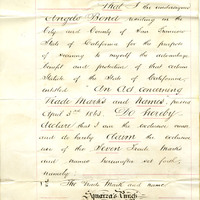 That I the undersigned
Angelo Bond residing in the
City and County of San Francisco
State of California for the purpose
of securing to myself the advantage
benefit and protection of that certain
Statute of the State of California
entitled "An Act concerning
Trade Marks and Names, passed
April 3rd 1863. Do hereby
declare that I am the exclusive owner
and do hereby claim the exclusive
use of the Seven Trade Marks
and names hereinafter set forth,
namely
1st The Trade Mark and name